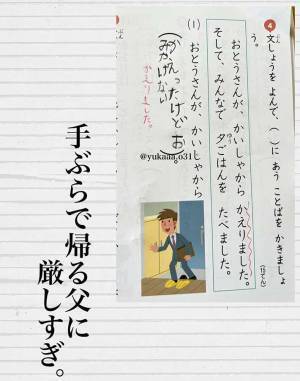 4 文しょうを よんで、( )に あう ことばを かきましょ
う。
(15てん)
おとうさんが、かいしゃから かえりました。
そして、みんなで 夕ごはんを たべました。
(1) おとうさんが、かいしゃから
(かえったけど お)。
みやげない
かえりました。
@yukaaa.o31
手ぶらで帰る父に
厳しすぎ。